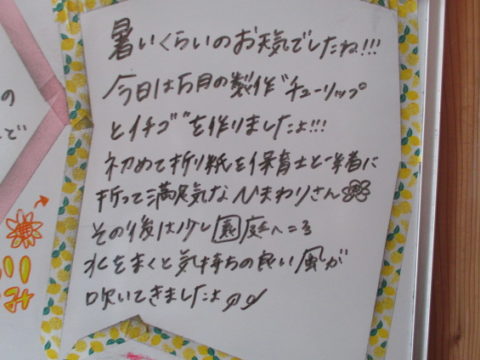 暑いくらいのお天気でしたね!!!
今日は5月の製作"チューリップ
とイチゴ"を作りましたよ!!!
初めて折り紙を保育士と一緒に
折って満足気なひまわりさん
その後は少し園庭へ
水をまくと気持ちの良い風が
吹いてきましたよ
の
で